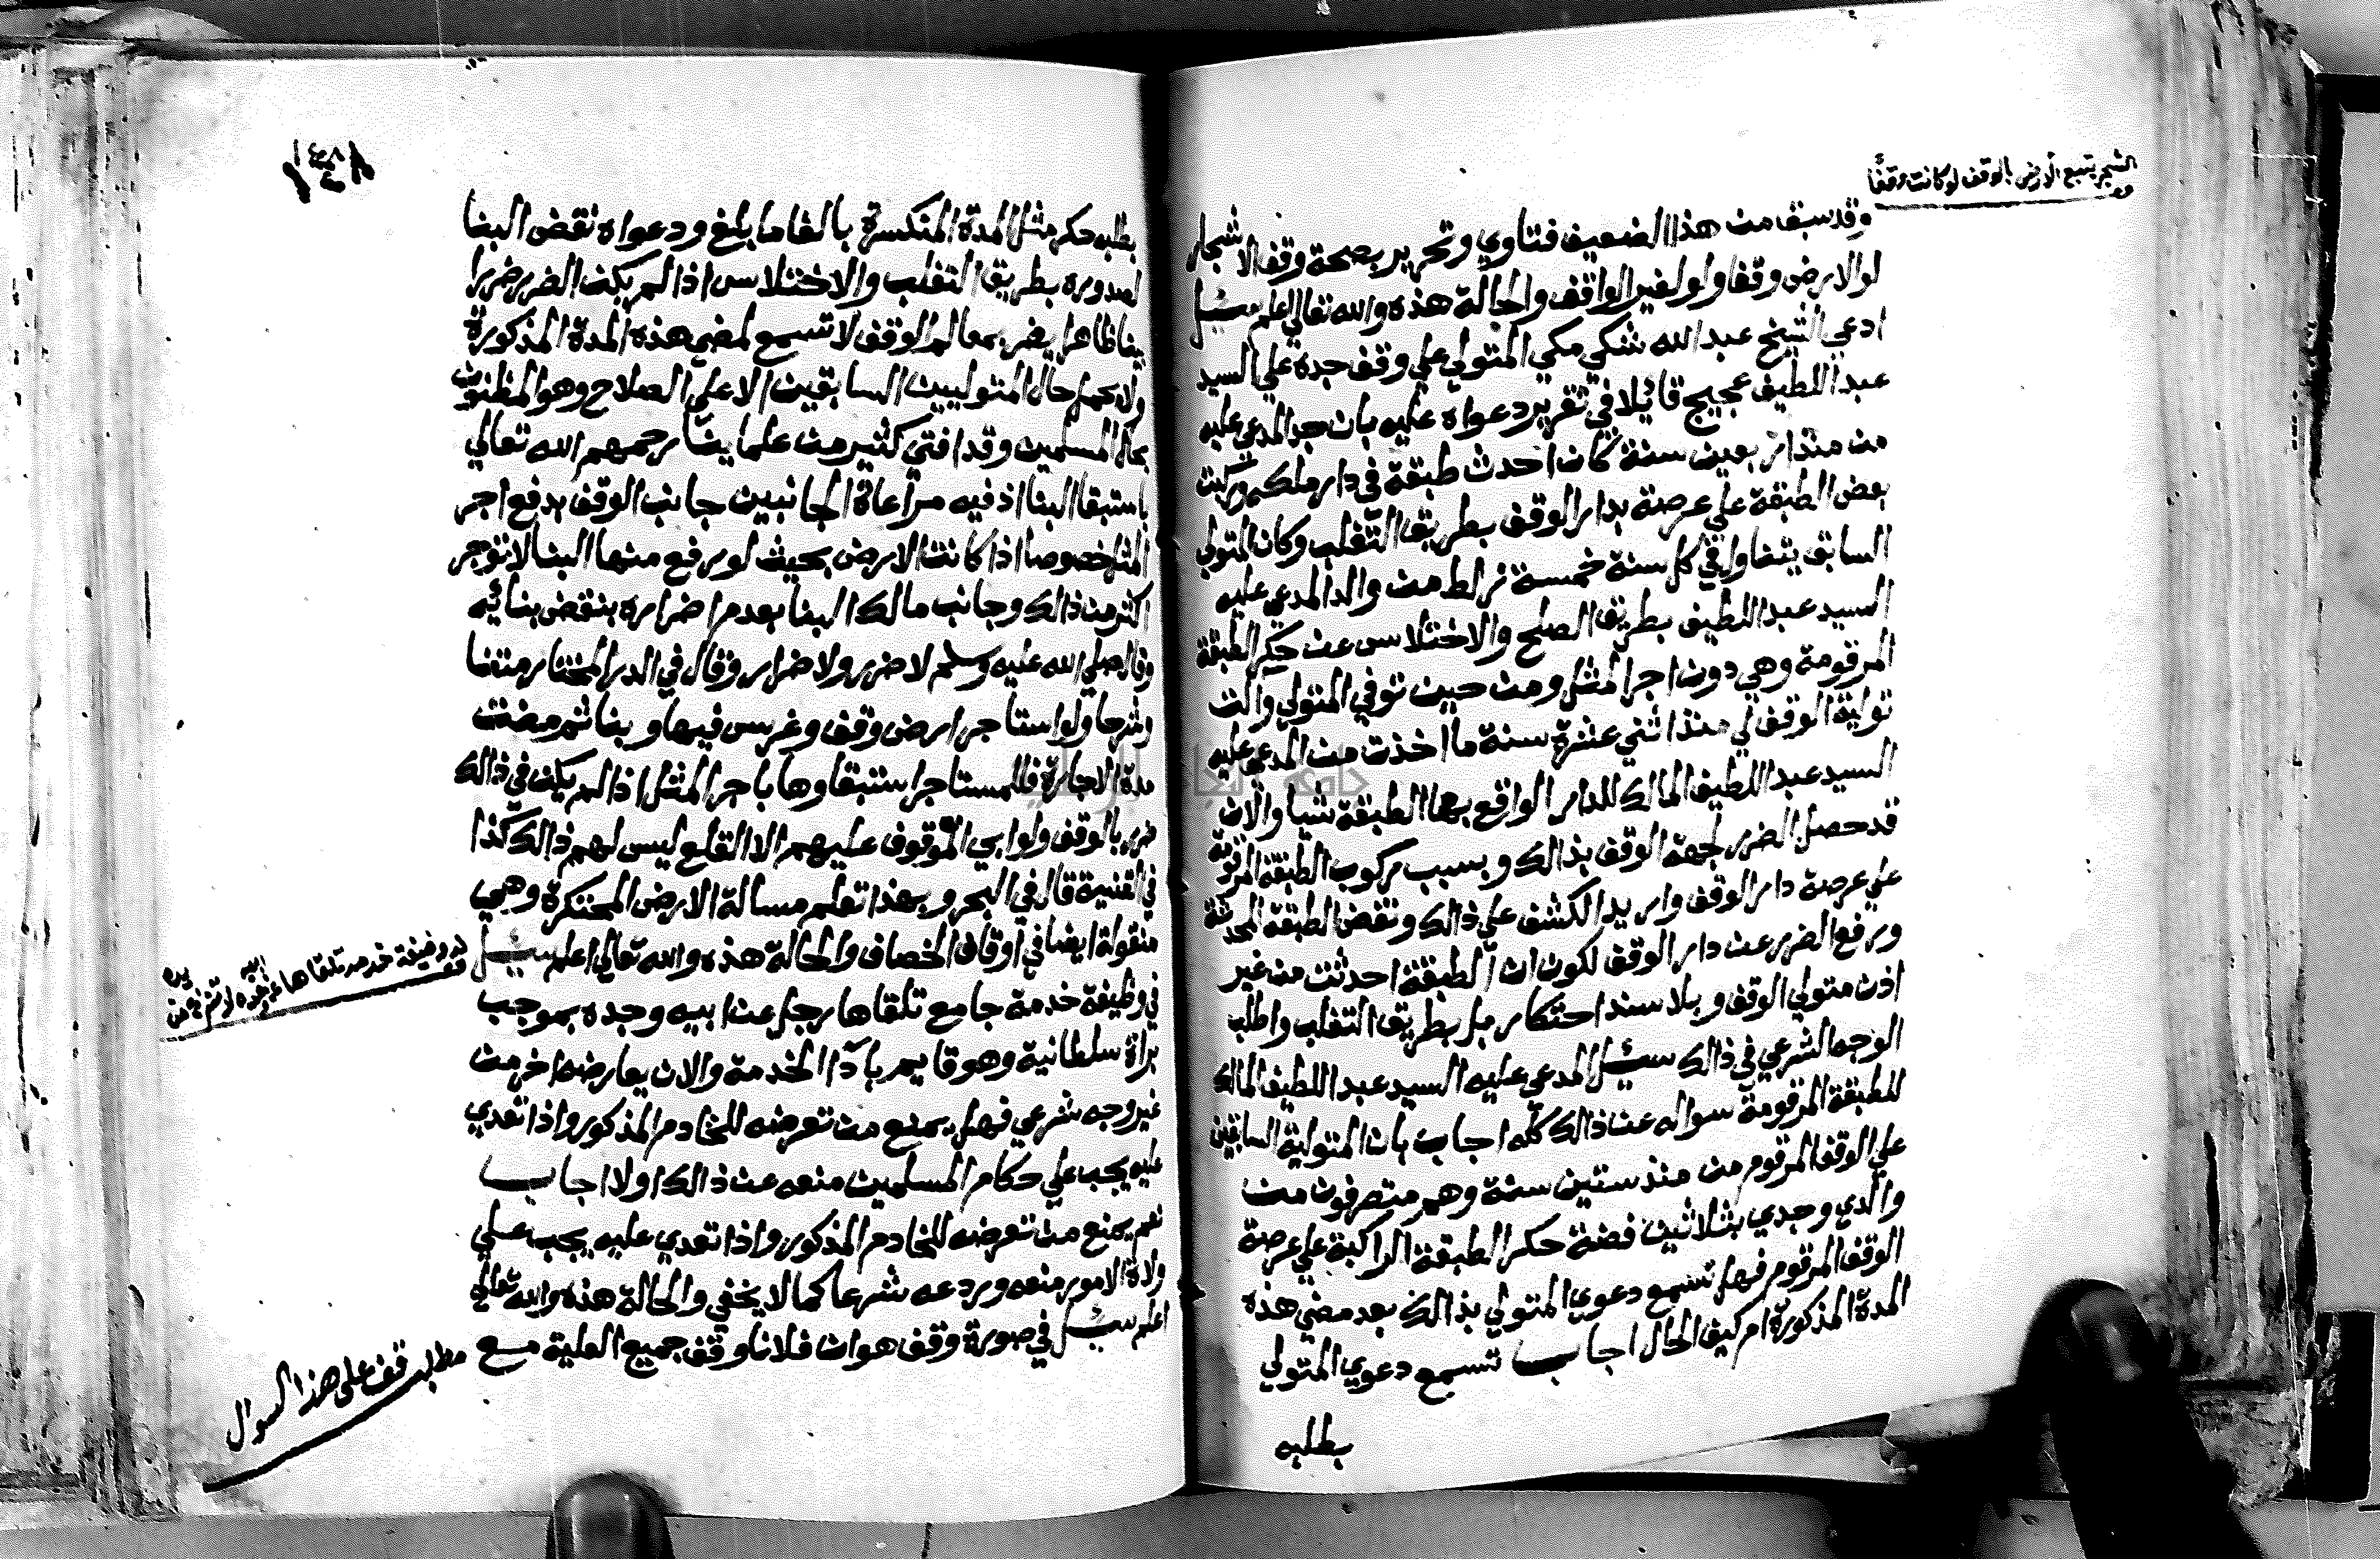 الشجر يتبع الأرض بالوقف لو كانت وقفًا
وقد سبق من هذا الضعيف فتاوي وتحرير بصحة وقف الاشجار
لو الارض وقفا ولو لغير الواقف والحالة هذه والله تعالي اعلم سئل
ادعي الشيخ عبد الله شكي مكي المتولي علي وقف جده علي السيد
عبد اللطيف عجيج قائلا في تقرير دعواه عليه بان جد المدعي عليه
من منذ اربعين سنة كان احدث طبقة في دار ملكه وركبت
بعض الطبقة علي عرصة بدار الوقف بطريق التغلب وكان المتولي
السابق يتناول في كل سنة خمسة زلط من والد المدعي عليه
السيد عبد اللطيف بطريق الصلح والاختلاس عن حكر الطبقة
المرقومة وهي دون اجر المثل ومن حين توفي المتولي والت
تولية الوقف لي منذ اثني عشرة سنة ما اخذت من المدعي عليه
السيد عبد اللطيف المالك للدار الواقع بها الطبقة شيا والان
قد حصل الضرر لجهة الوقف بذالك وبسبب ركوب الطبقة المرقومة
علي عرصة دار الوقف واريد الكشف علي ذالك ونقض الطبقة المحدثة
ورفع الضرر عن دار الوقف لكون ان الطبقة احدثت من غير
اذن متولي الوقف وبلا سند احتكار بل بطريق التغلب واطلب
الوجه الشرعي في ذالك سئل المدعي عليه السيد عبد اللطيف المالك
للطبقة المرقومة سواله عن ذالك كله اجاب بان المتولية السابقين
علي الوقف المرقوم من منذ ستين سنة وهم متصرفون من
والدي وجدي بثلاثين فضة حكر الطبقة الراكبة علي عرصة
الوقف المرقوم فهل تسمع دعوي المتولي بذالك بعد مضي هذه
المدة المذكورة ام كيف الحال اجاب تسمع دعوي المتولي
بطلبه
١٤٨
بطلبه حكر مثل المدة المنكسرة بالغا ما بلغ ودعواه نقض البنا
لصدوره بطريق التغلب والاختلاس اذا لم يكن الضرر ضررا
بينا ظاهرا يضر بمعالم الوقف لا تسمع لمضي هذه المدة المذكورة
ولان يحمل حال المتوليين السابقين الا علي الصلاح وهو المظنون
بحال المسلمين وقد افتي كثير من علماينا رحمهم الله تعالي
باستبقا البنا اذ فيه مراعاة الجانبين جانب الوقف بدفع اجر
المثل خصوصا اذا كانت الارض بحيث لو رفع منها البنا لا توجر
اكثر من ذالك وجانب مالك البنا بعدم اضراره بنقض بنائه
وقال صلي الله عليه وسلم لا ضرر ولا ضرار وقال في الدر المختار متنا
وشرحا ولو استاجر ارض وقف وغرس فيها وبنا ثم مضت
مدة الاجارة فللمستاجر استبقاوها باجر المثل اذا لم يكن في ذالك
ضرر بالوقف ولو ابي الموقوف عليهم الا القلع ليس لهم ذالك كذا
في القنية قال في البحر وبهذا تعلم مسالة الارض المحتكرة وهي
منقولة ايضا في اوقاف الخصاف والحالة هذه والله تعالي اعلم سئل
في وظيفة خدمة جامع تلقاها رجل عن ابيه وجده بموجب
براة سلطانية وهو قايم بادا الخدمة والان يعارضه اخر من
غير وجه شرعي فهل يمنع من تعرضه للخادم المذكور واذا تعدي
عليه يجب علي حكام المسلمين منعه عن ذالك اولا اجاب
نعم يمنع من تعرضه للخادم المذكور واذا تعدي عليه يجب علي
ولاة الامور منعه وردعه شرعا كما لا يخفي والحالة هذه والله تعالي
اعلم سئل في صورة وقف هو ان فلانا وقف جميع العلية مع
وظيفة خدمة تلقاها عن جده
مطلب قف على هذا السوال